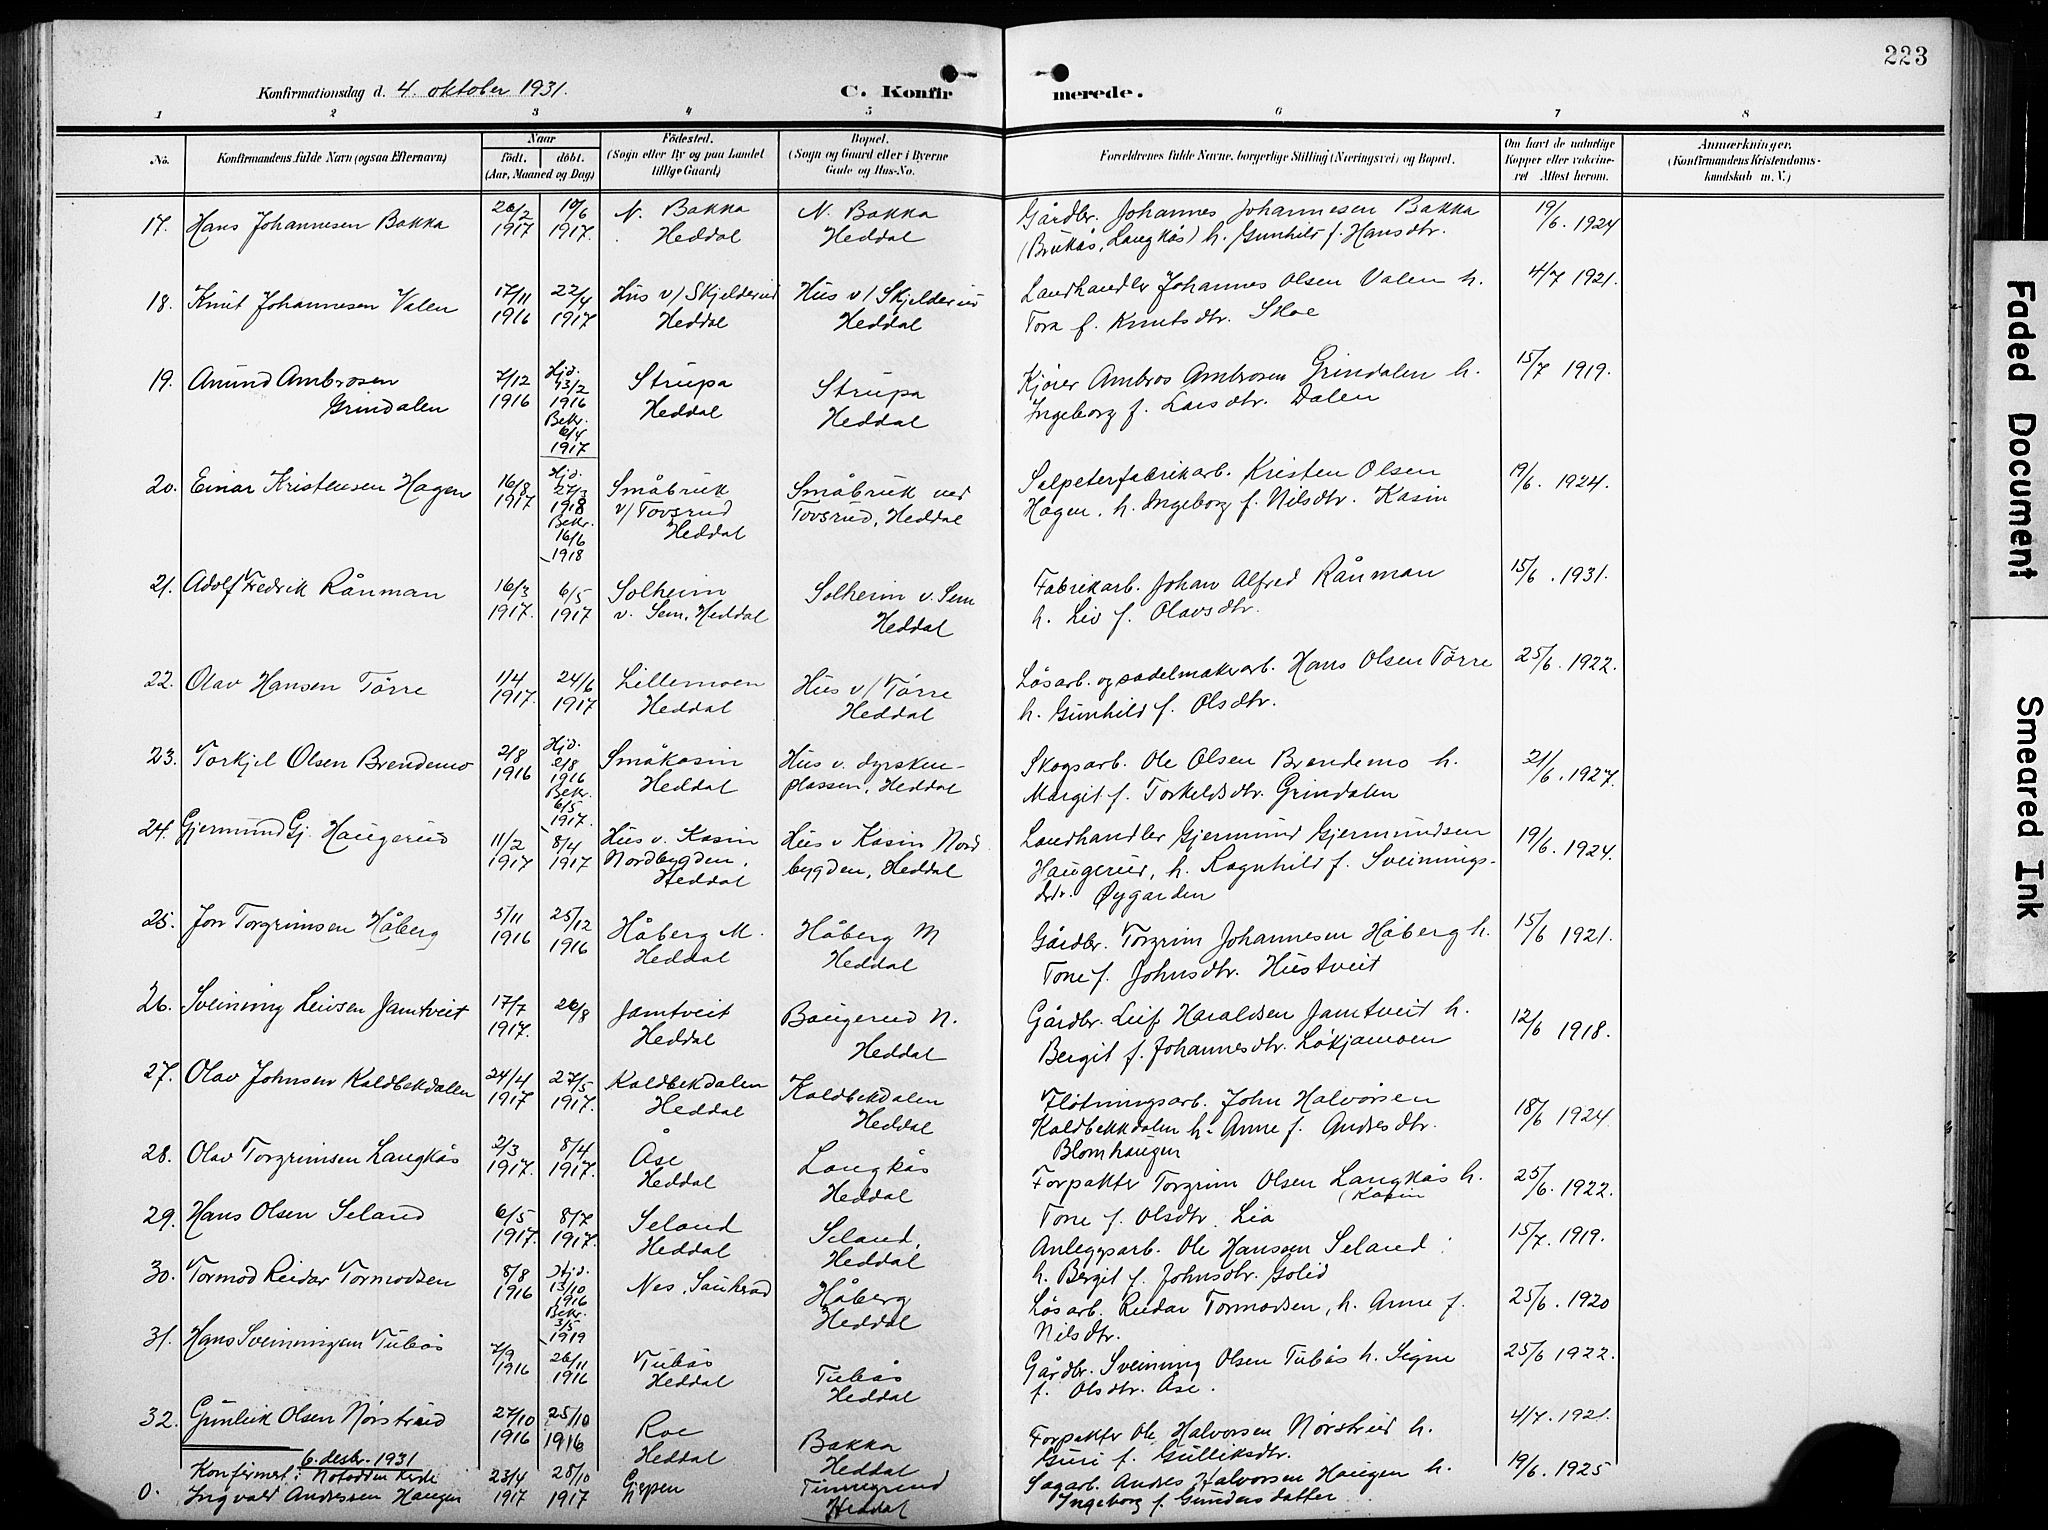 223
Konfirmationsdag d. 4. oktober 1931.
C. Konfirmerede.
1 2 3 4 5 6 7 8
No.
Konfirmandens fulde Navn (ogsaa Efternavn)
Naar
født. døbt.
(Aar, Maaned og Dag)
Fødested.
(Sogn eller By og paa Landet
tillige Gaard)
Bopæl.
(Sogn og Gaard eller i Byerne
Gade og Hus-No.
Forældrenes fulde Navne, borgerlige Stilling (Næringsvei) og Bopæl.
Om havt de naturlige
Kopper eller vakcine-
ret Attest herom.
Anmærkninger.
(Konfirmandens Kristendoms-
kundskab m. V.)
17. Hans Johannesen Bakka 26/2 1917 10/6 1917. N. Bakka Heddal N. Bakka Heddal Gårdbr. Johannes Johannesen Bakka 19/6. 1924
(Brukås, Langkås) h. Gunhild f. Hansdtr.
18. Knut Johannesen Valen 17/11 1916 22/4 1917 Hus v/ Skjelderud Heddal Hus v/ Skjelderud Heddal Landhandler Johannes Olsen Valen h. 4/7 1921.
Tora f. Knutsdtr. Skoe
19. Amund Ambrosen Grindalen 7/12 1916 Hjd. 13/2 1916 Bekr. 6/4 1917 Strupa Heddal Strupa Heddal Kjører Ambros Ambrosen Grindalen h. 15/7 1919.
Ingeborg f. Larsdtr. Dalen
20. Einar Kristensen Hagen 16/8 1917 Hjd. 27/3 1918 Bekr. 16/6 1918 Småbruk v/ Tovsrud Heddal Småbruk ved Tovsrud, Heddal Salpeterfabrikarb. Kristen Olsen 19/6. 1924.
Hagen. h. Ingeborg f. Nilsdtr. Kasin
21. Adolf Fredrik Rånman 16/3 1917. 6/5 1917 Solheim v. Sem, Heddal Solheim v. Sem Heddal Fabrikarb. Johan Alfred Rånman 15/6. 1931.
h. Liv f. Olavsdtr.
22. Olav Hansen Tørre 1/4 1917. 24/6 1917 Lillemoen Heddal Hus v/ Tørre Heddal Løsarb. og sadelmakerarb. Hans Olsen Tørre 25/6. 1922.
h. Gunhild f. Olsdtr.
23. Torkjel Olsen Brendemo 2/8 1916 Hjd. 2/8 1916 Bekr. 6/5 1917. Småkasin Heddal Hus v. dyrskuplassen, Heddal Skogsarb. Ole Olsen Brendemo h. 21/6. 1927.
Margit f. Torkeldsdtr. Grindalen
24. Gjermund Gj. Haugerud 11/2 1917 8/4 1917 Hus v. Kasin Nordbygden, Heddal Hus v Kasin Nordbygden, Heddal Landhandler Gjermund Gjermundsen 19/6. 1924.
Haugerud, h. Ragnhild f. Sveinungs-
dtr. Øygarden
25. Jon Torgrimsen Håberg 5/11 1916 25/12 1916 Håberg M. Heddal Håberg M Heddal Gårdbr. Torgrim Johannesen Håberg h. 15/6 1921.
Tone f. Johnsdtr. Hustveit
26. Sveinung Leivsen Jamtveit 17/7 1917. 26/8 Jamtveit Heddal Baugerud N. Heddal Gårdbr. Leif Haraldsen Jamtveit h. 12/6 1918.
Bergit f. Johannesdtr. Løkjamoen
27. Olav Johnsen Kaldbekdalen 24/4 1917 27/5 1917. Kaldbekdalen Heddal Kaldbekdalen Heddal Fløtningsarb. John Halvorsen 18/6 1924
Kaldbekkdalen h. Anne f. Andresdtr.
Blomhaugen
28. Olav Torgrimsen Langkås 2/3 1917. 8/4 1917. Åse Heddal Langkås Heddal Forpakter Torgrim Olsen Langkås h. 25/6. 1922.
(Kasin
Tone f. Olsdtr. Lia
29. Hans Olsen Seland 6/5 1917. 8/7 1917. Seland Heddal Seland, Heddal Anleggsarb. Ole Hanssen Seland 15/7. 1919.
h. Bergit f. Johnsdtr. Golid
30. Tormod Reidar Tormodsen 8/8 1916 Hjd. 13/10 1916 Bekr. 3/5 1919 Nes, Sauherad Håberg Heddal Løsarb. Reidar Tormodsen, h. Anne f. 25/6. 1920
Nilsdtr.
31. Hans Sveinungsen Tubås 7/9 1916 26/11 1916 Tubås Heddal Tubås Heddal Gårdbr. Sveinung Olsen Tubås h. Signe 25/6 1922.
f. Olsdtr. Åse.
32. Gunleik Olsen Nørstrud 27/10 1916 25/10 1916 Roe Heddal Bakka Heddal Forpakter Ole Halvorsen Nørstrud h. 4/7. 1921.
Guri f. Gulliksdtr.
6. desbr. 1931
Konfirmert i Notodden kirke
0. Ingvald Andressen Haugen 23/4 1917 28/10 1917 Gjepen Tinnegrend Heddal Sagarb. Andres Halvorsen Haugen h. 19/6. 1925
Ingeborg f. Gundersdatter
Faded Document
Smeared Ink